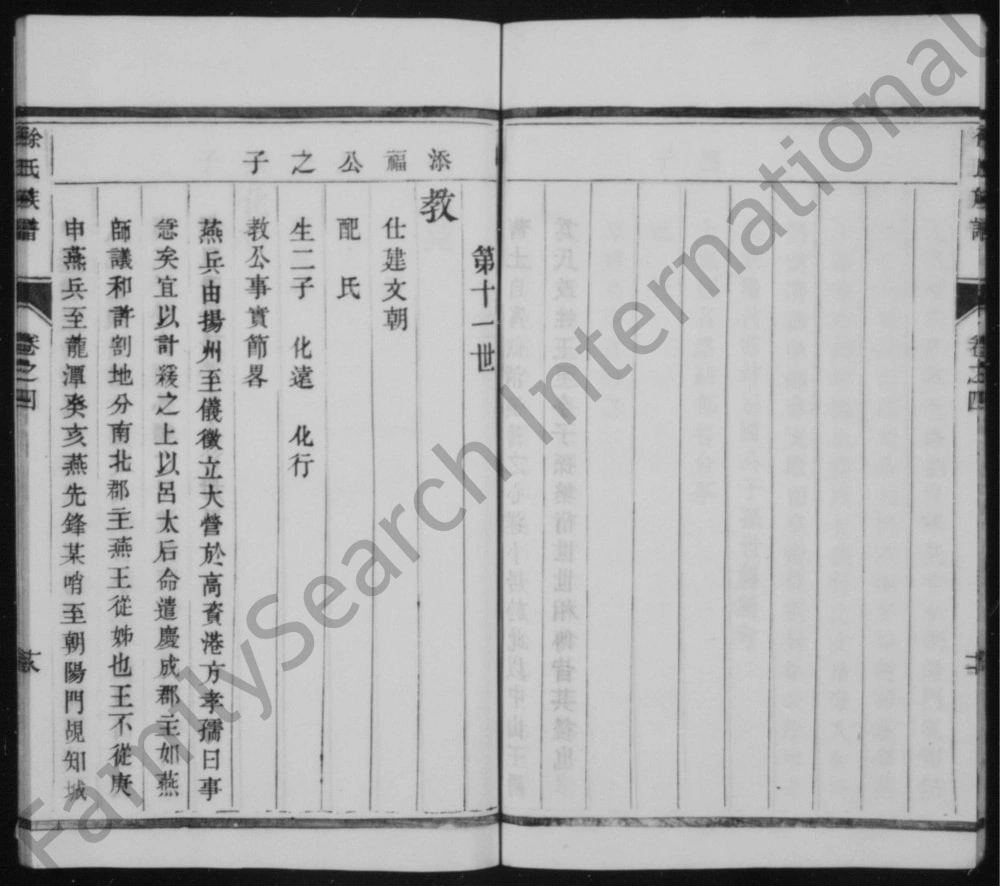 徐氏族譜
卷之四
第十一世
添福公之子
教
仕建文朝
配 氏
生二子 化遠 化行
教公事實節畧
燕兵由揚州至儀徵立大營於高資港方孝孺曰事
急矣宜以計緩之上以呂太后命遣慶成郡主如燕
師議和許割地分南北郡主燕王從姊也王不從庚
申燕兵至龍潭癸亥燕先鋒某哨至朝陽門覘知城
徐氏族譜
卷之四
FamilySearch International